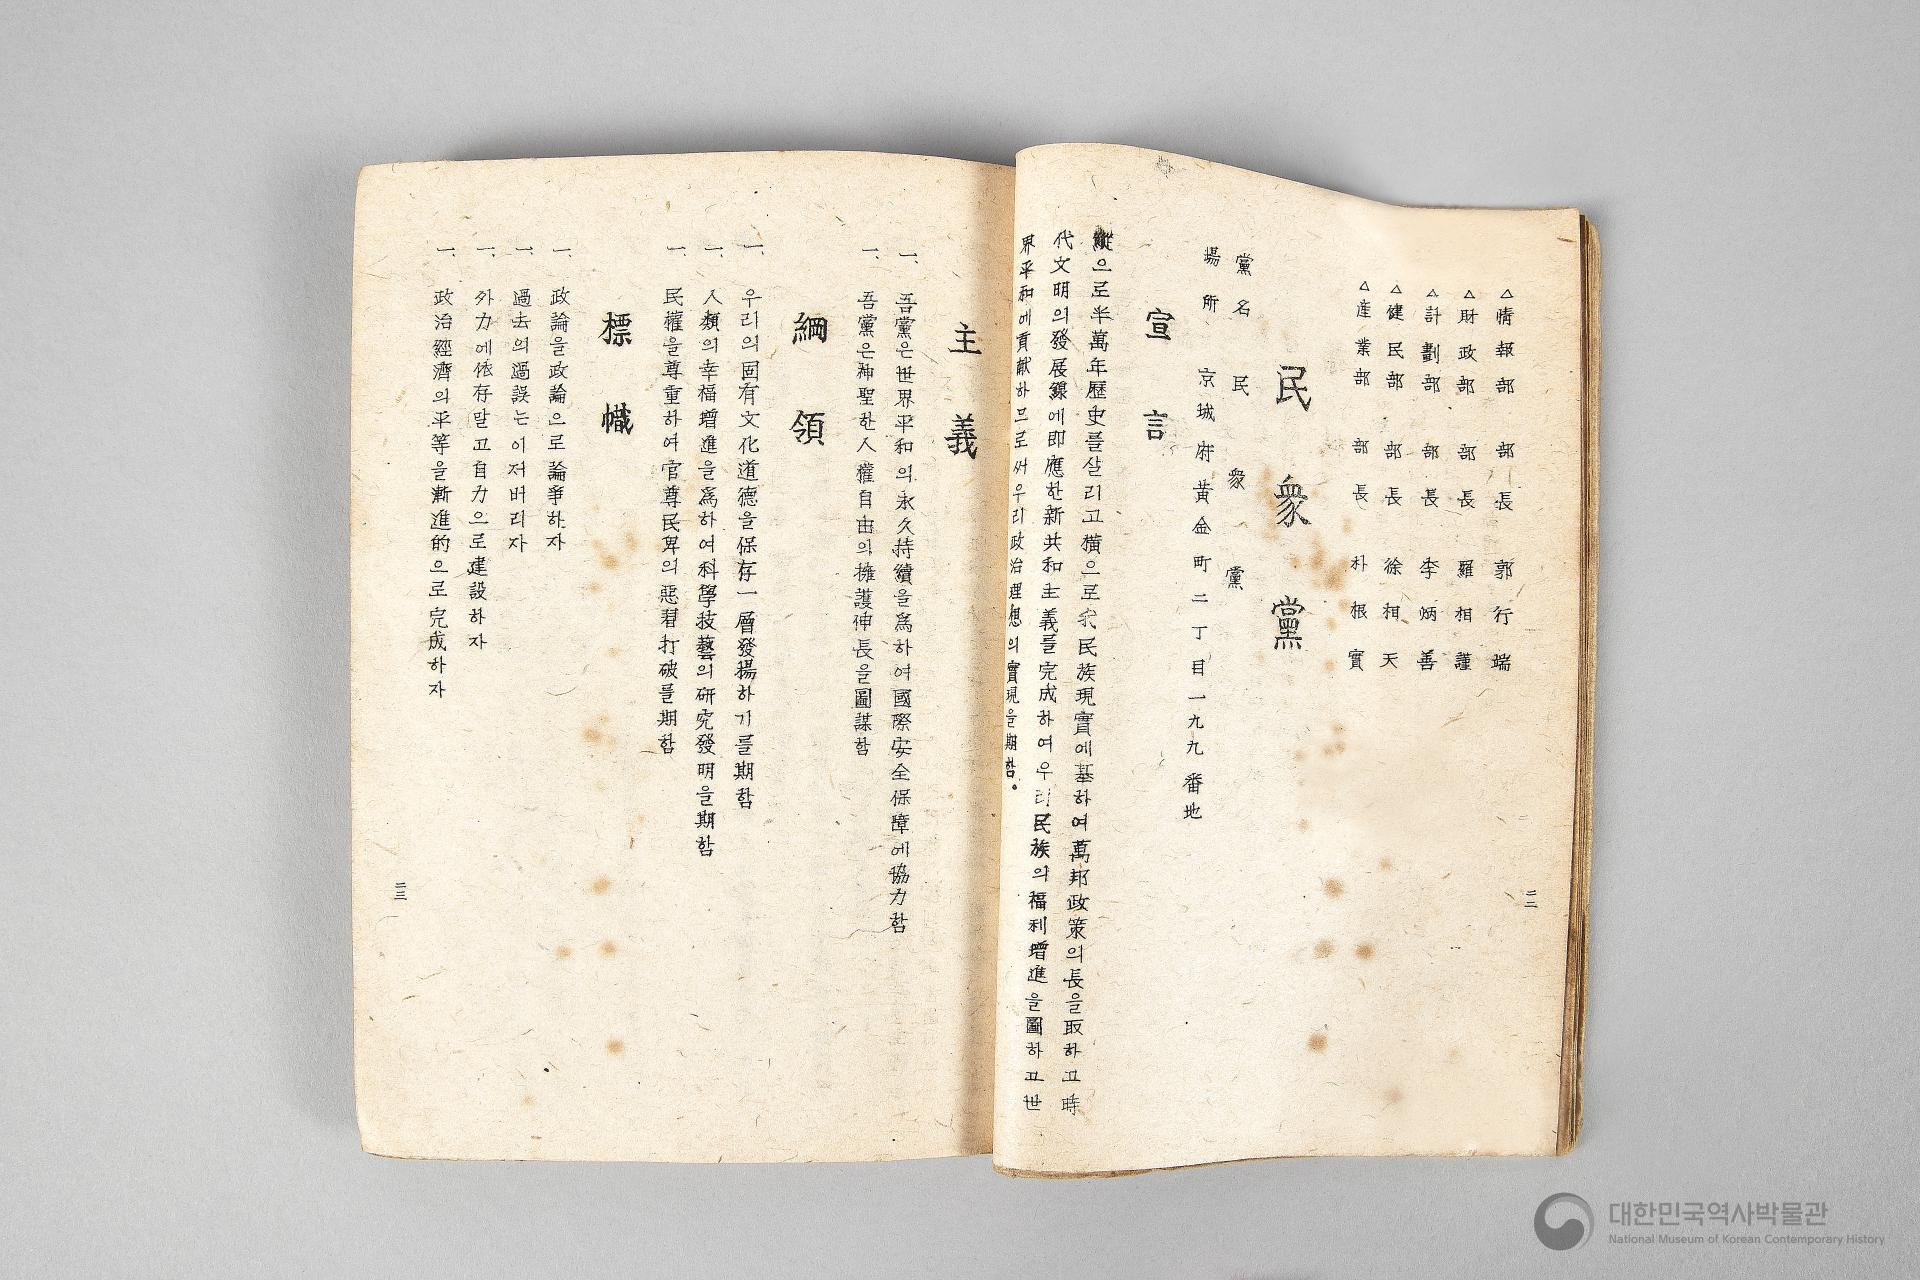 △情報部 部長 郭行端
△財政部 部長 羅相謹
△計劃部 部長 李炳善
△健民部 部長 徐相天
△産業部 部長 朴根實
民衆黨
黨名 民衆黨
場所 京城府黃金町二丁目一九九番地
宣言
縱으로半萬年歷史를살리고橫으로我民族現實에基하여萬邦政策의長을取하고時
代文明의發展線에即應한新共和主義를完成하여우리民族의福利增進을圖하고世
界平和에貢献하므로써우리政治理想의實現을期함.
二二
主義
一、吾黨은世界平和의永久持續을爲하여國際安全保障에協力함
一、吾黨은神聖한人權自由의擁護伸長을圖謀함
綱領
一、우리의固有文化道德을保存一層發揚하기를期함
一、人類의幸福增進을爲하여科學技藝의硏究發明을期함
一、民權을尊重하여官尊民卑의惡習打破를期함
標幟
一、政論을政論으로論爭하자
一、過去의過誤는이저버리자
一、外力에依存말고自力으로建設하자
一、政治經濟의平等을漸進的으로完成하자
二三
대한민국역사박물관
National Museum of Korean Contemporary History